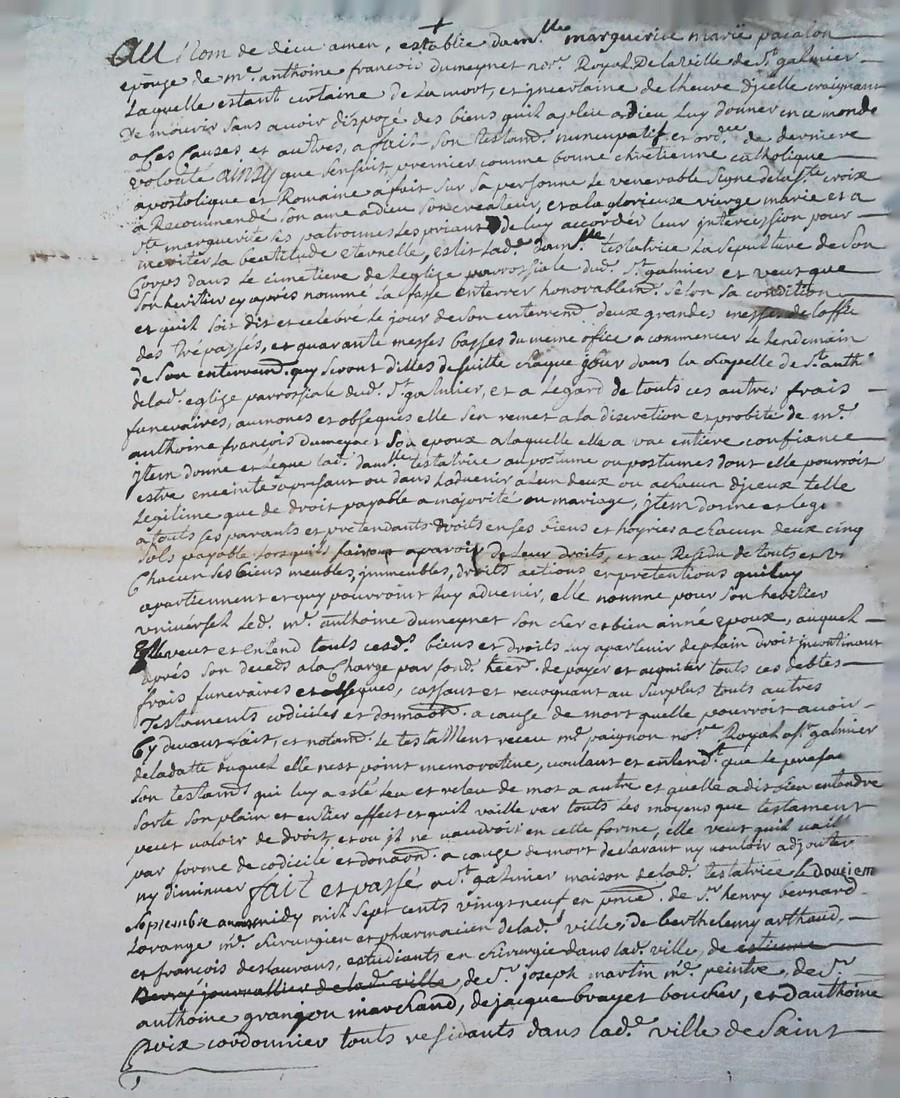 Au Nom de dieu amen, establie dam.lle marguerite marie pacalon
epouze de me. anthoine françois dumeynet nore. Royal de la ville de St. galmier
Laquelle estant certaine de La mort, et jncertaine de lheure djcelle craignant
De mourir sans avoir dispozé des biens quil a pleu a Dieu Luy donner en ce monde
a Ces Causes et autres, a fait son testamt. nuncupatif et ordre. de derniere
volonté ainsy que sensuit, premier comme bonne chretienne catholique
apostolique et Romaine a fait sur sa personne le venerable signe de la ste croix
a Recommendé son ame a dieu son createur, et a la glorieuse vierge marie et a
ste marguerite ses patronnes Les priant de luy accorder leur intercession pour
meriter La beatitude eternelle, eslit Lade. damlle testatrice La sepulture de Son
Corps dans le cimetiere de Leglise parrossiale dud. St galmier et veut que
Son heritier cy apres nommé la fasse enterrer honorablemt. selon sa condition
et quil soit dit et celebré le jour de son enterremt. deux grandes messes de loffice
des trépassés, et quarante messes basses du meme office a commencer le lendemain
de Son enterremt. quy seront dittes de suitte chaque jour dans la chapelle de St. anthe
de lad. eglise parrossiale dud. St galmier, et a Legard de touts ces autres frais
funeraires, aumones et obseques elle sen remet a la discretion et probité de me.
anthoine françois dumeynet Son epoux a laquelle elle a une entiere confiance
jtem donne et Legue lad. damlle testatrice au postume ou postumes dont elle pourroit
estre enceinte a presant ou dans Ladvenir a Lun deux ou a chacun djceux telle
Legitime que de droit payable a majorité ou mariage, jtem donne et legue
a touts ses parants et pretendants droits en ses biens et hoyries a chacun deux cinq
Sols payable lorsquils fairont aparoir de Leur droits, et au Residu de touts et un
Chacun ses biens meubles, jmmeubles, droits actions et pretentions quil luy
apartiennent et quy pourroint Luy advenir, elle nomme pour son heritier
universel Led. me. anthoine dumeynet son cher et bien aimé epoux, auquel
Elle veut et entend touts cesd. biens et droits luy apartenir de plain droit jncontinant
après son deceds a la Charge par sond. heer. de payer et aquiter touts ces debtes
frais funeraires et obseques, cassant et revoquant au surplus touts autres
Testaments codiciles et donnaons. a cause de mort quelle pourroit avoir
Cy devant fait, et notamt. le testament receu me paignon nore Royal a St galmier
de la datte duquel elle nest point memorative, voulant et entendt. que le presant
Son testamt qui luy a esté leu et releu de mot a autre et quelle a dit bien entendre
sorte son plain et entier effect et quil vaille par touts Les moyens que testament
peut valoir de droit, et ou jl ne vaudroit en cette forme, elle veut quil vaille
par forme de codicile et donaon. a cauze de mort declarant ny vouloir adjouter
ny diminuer fait et passé a St galmier maison de lad. testatrice le douziem
septembre avant midy mil sept cents vingt neuf en pnce. de Sr. henry bernard
Lorange me. chirurgien et pharmacien de lad. ville, de berthelemy arthaud,
et françois deslauvans, estudiants en chirurgie dans lad. ville, de estienne
journallier de lad. ville de Sr. joseph martin me. peintre, de Sr.
anthoine granjon marchand, de jacque brayet boucher, et danthoine
cordonnier touts residants dans lade. ville de Saint